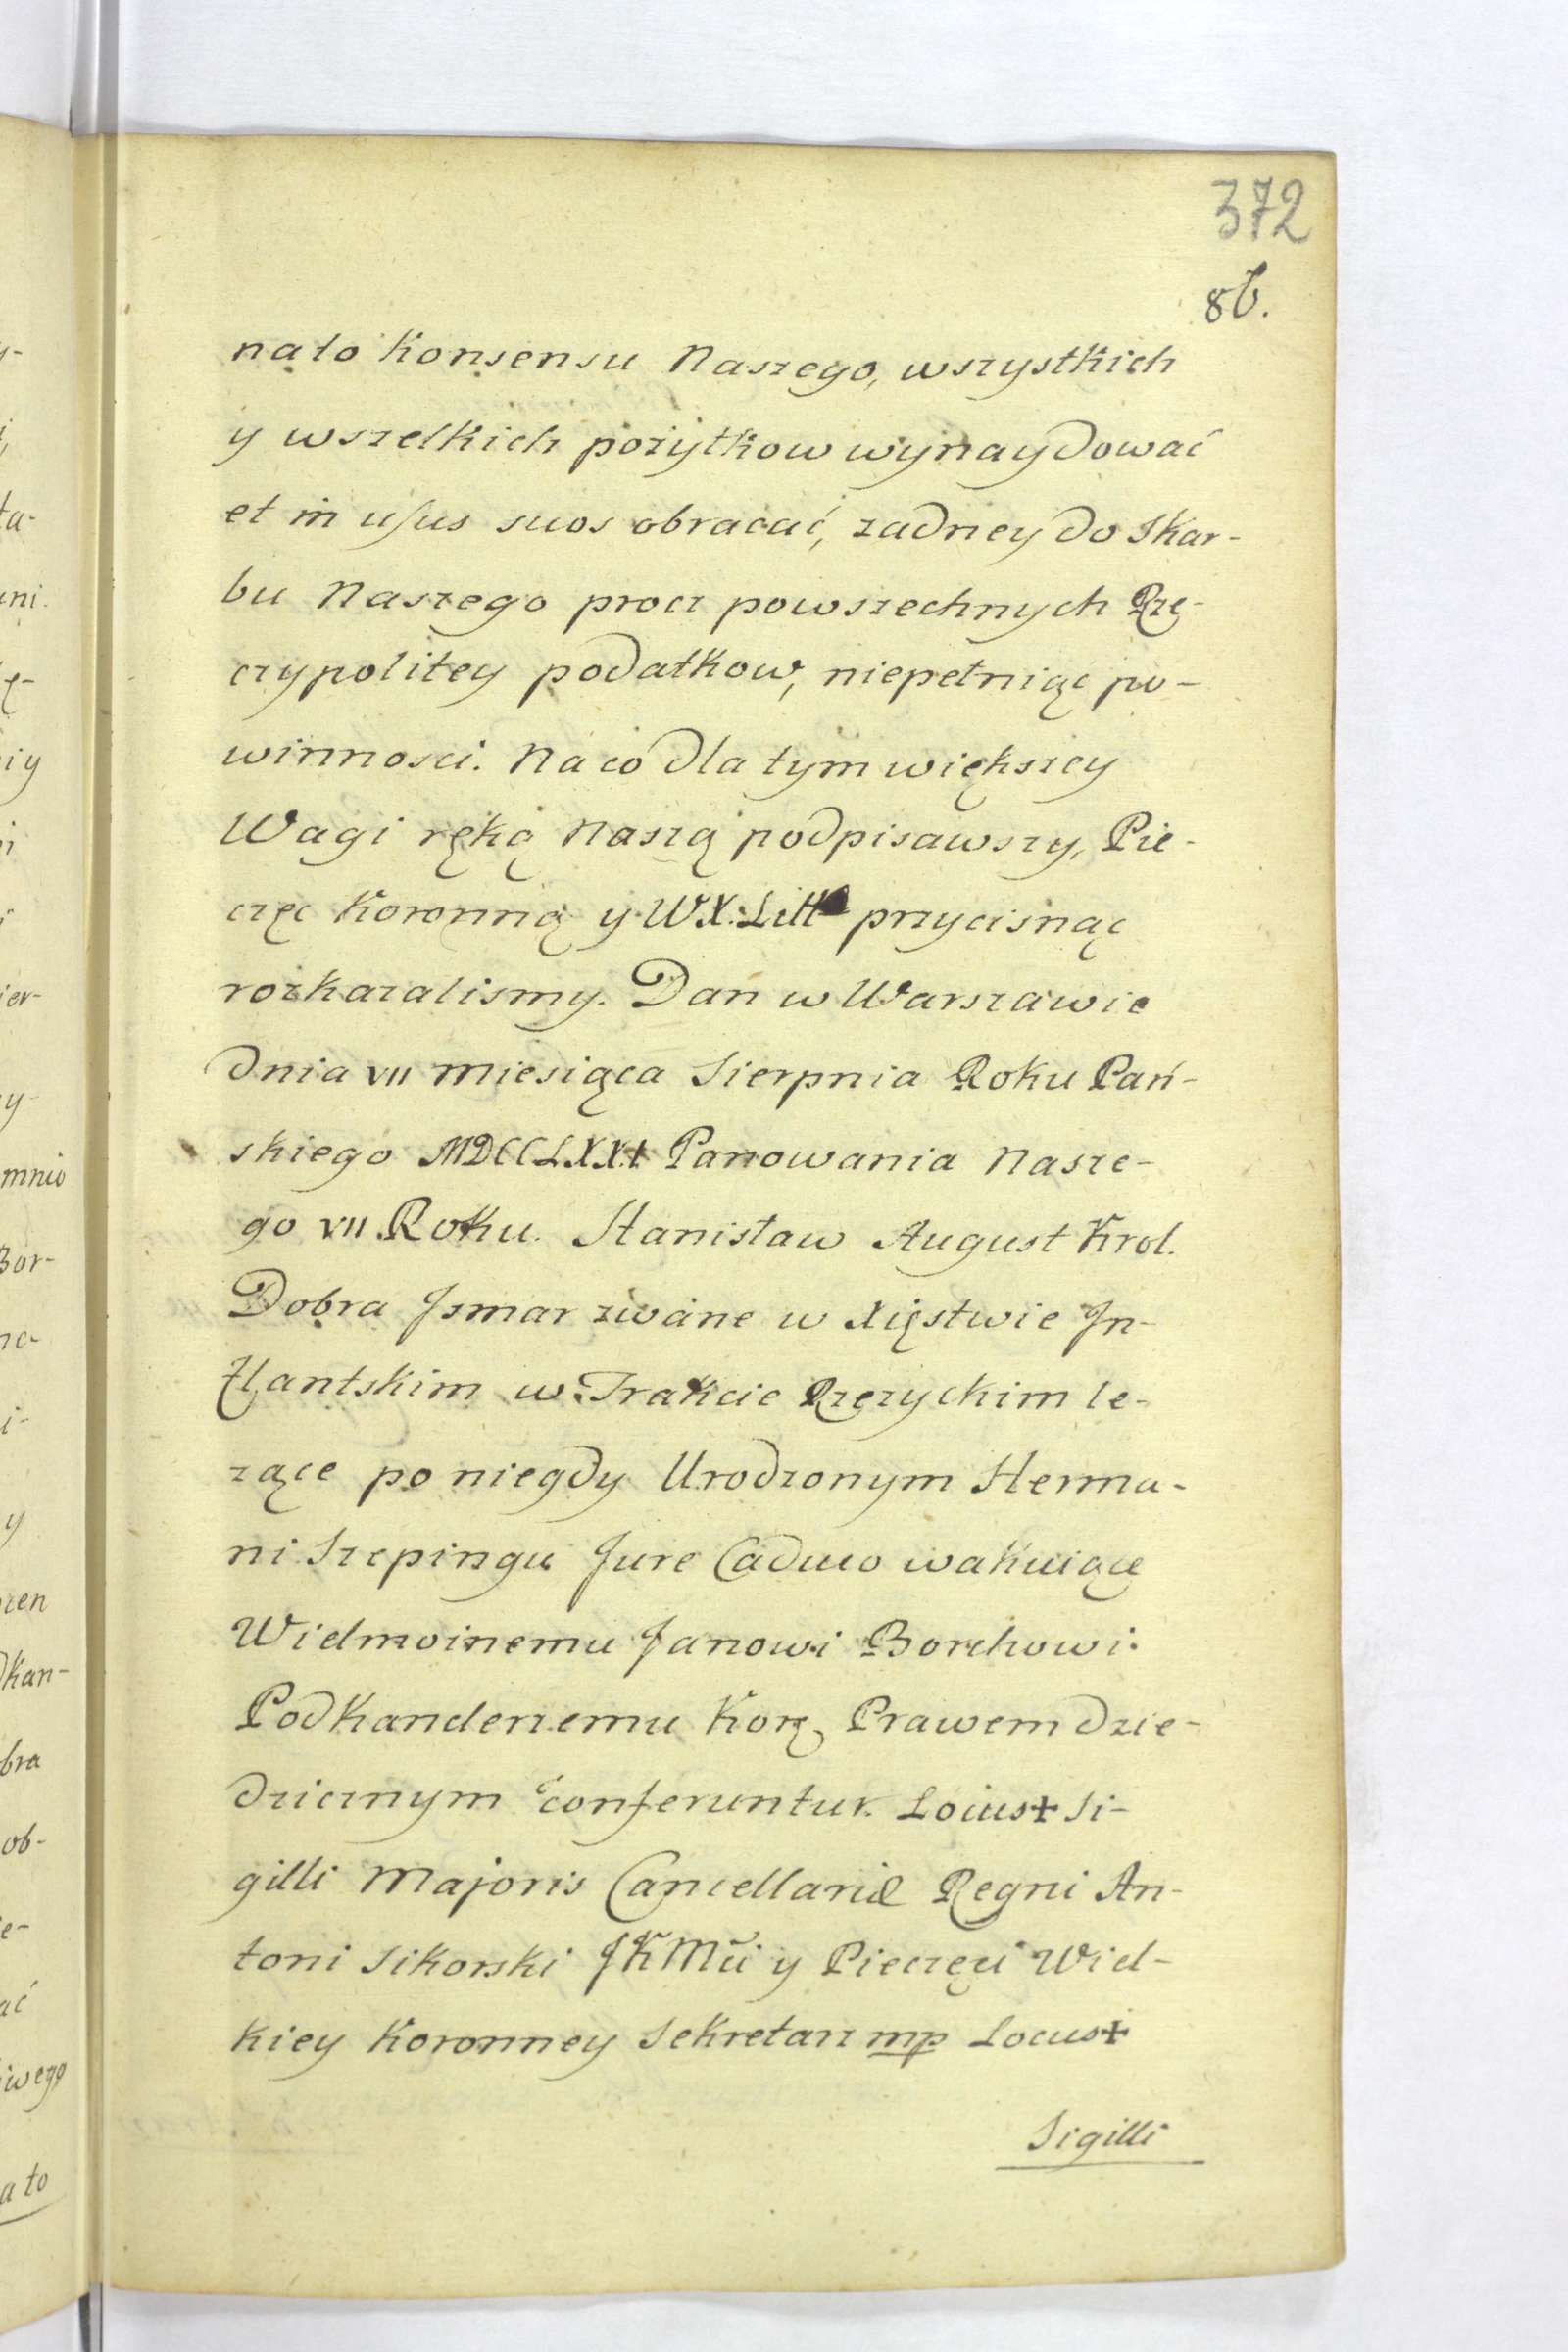 372
86.
nato Konsensu Naszego, wszystkich
y wszelkich pożytkow wynaydować
et in usus suos obracać, zadney do Skar-
bu Naszego procz powszechnych Rze-
czypolitey podatkow, niepełniąc po-
winnosci. Na co dla tym większey
Wagi ręką Naszą podpisawszy, Pie-
częc Koronną y W.X. Litt przycisnąc
rozkazalismy. Dan w Warszawie
dnia VII miesiąca Sierpnia Roku Pań-
skiego MDCCLXXI Panowania Nasze-
go VII Roku. Stanisław August Krol.
Dobra Jsmar zwane w Xięstwie Jn-
flantskim w Trakcie Rzezyckim le-
zące po niegdy Urodzonym Herma-
ni Szepingu Jure Caduco wakuiące
Wielmoznemu Janowi Borchowi
Podkanclerzemu Kor. Prawem dzie-
dzicznym conferuntur. Locus + Si-
gilli Majoris Cancellariæ Regni An-
toni Sikorski JKMci y Pieczęci Wiel-
kiey Koronney Sekretarz mp Locus +
Sigilli